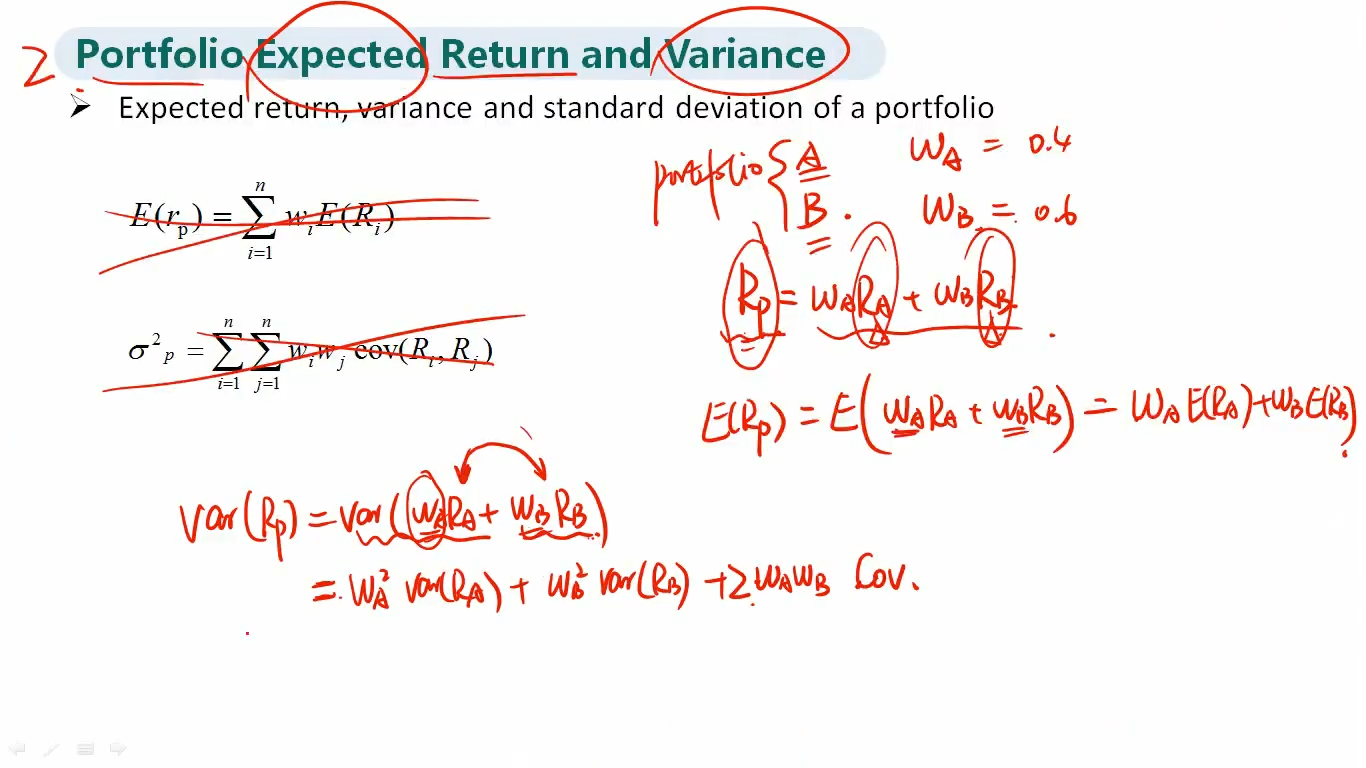 2 Portfolio Expected Return and Variance
➢ Expected return, variance and standard deviation of a portfolio
E(r_p) = \sum_{i=1}^{n} w_i E(R_i)
σ²_p = \sum_{i=1}^{n} \sum_{j=1}^{n} w_i w_j cov(R_i, R_j)
portfolio { A   w_A = 0.4
B .   w_B = 0.6
R_p = w_A R_A + w_B R_B .
E(R_p) = E(w_A R_A + w_B R_B) = w_A E(R_A) + w_B E(R_B)
Var(R_p) = Var(w_A R_A + w_B R_B)
= w_A² var(R_A) + w_B² var(R_B) + 2 w_A w_B Cov.